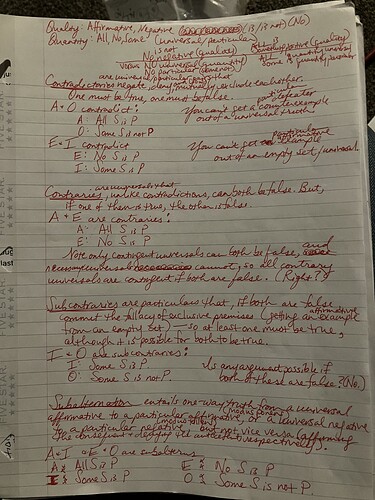 Quality: Affirmative, Negative (is/is not) (No)
Quantity: All, No, Some (universal/particular)
is not
No negative (quality)
No universal (quantity)
No particular
All is
Some is quantity
are universals/particulars that
Contradictories negate, deny, mutually exclude each other.
One must be true, one must be false.
A + O contradict:
particular
A: All S is P
You can't get a counterexample
O: Some S is not P
out of a universal truth
E + I contradict
particular
You can't get example
E: No S is P
out of an empty set/universal
I: Some S is P
are universals that
Contraries, unlike contradictions, can both be false. But,
if one of them is true, the other is false.
A + E are contraries:
A: All S is P
E: No S is P
Note only contingent universals can both be false, and
necessary universals cannot, so all contrary
universals are contingent if both are false. (Right?)
Subcontraries are particulars that, if both are false
commit the fallacy of exclusive premises (getting an affirmative example
from an empty set) — so at least one must be true,
although it is possible for both to be true.
I + O are subcontraries:
I: Some S is P
Is any argument possible if
O: Some S is not P
both of these are false? (No.)
Subalternation entails one-way truth from a universal
affirmative to a particular affirmative, or a universal negative
(modus ponens)
to a particular negative but not vice versa (affirming
(modus tollens)
the consequent + denying the antecedent respectively).
A + I or E + O are subalterns
A: All S is P
E: No S is P
I: Some S is P
O: Some S is not P.